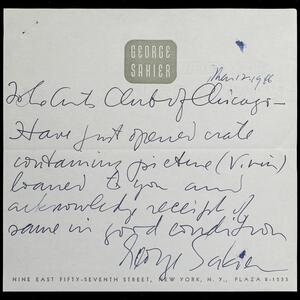 GEORGE
SAKIER
12 1966
To the Arts Club of Chicago —
Have just opened crate
containing picture (Vivin)
loaned to you and
acknowledge receipt of
same in good condition
George Sakier
NINE EAST FIFTY-SEVENTH STREET, NEW YORK, N. Y., PLAZA 8-1535